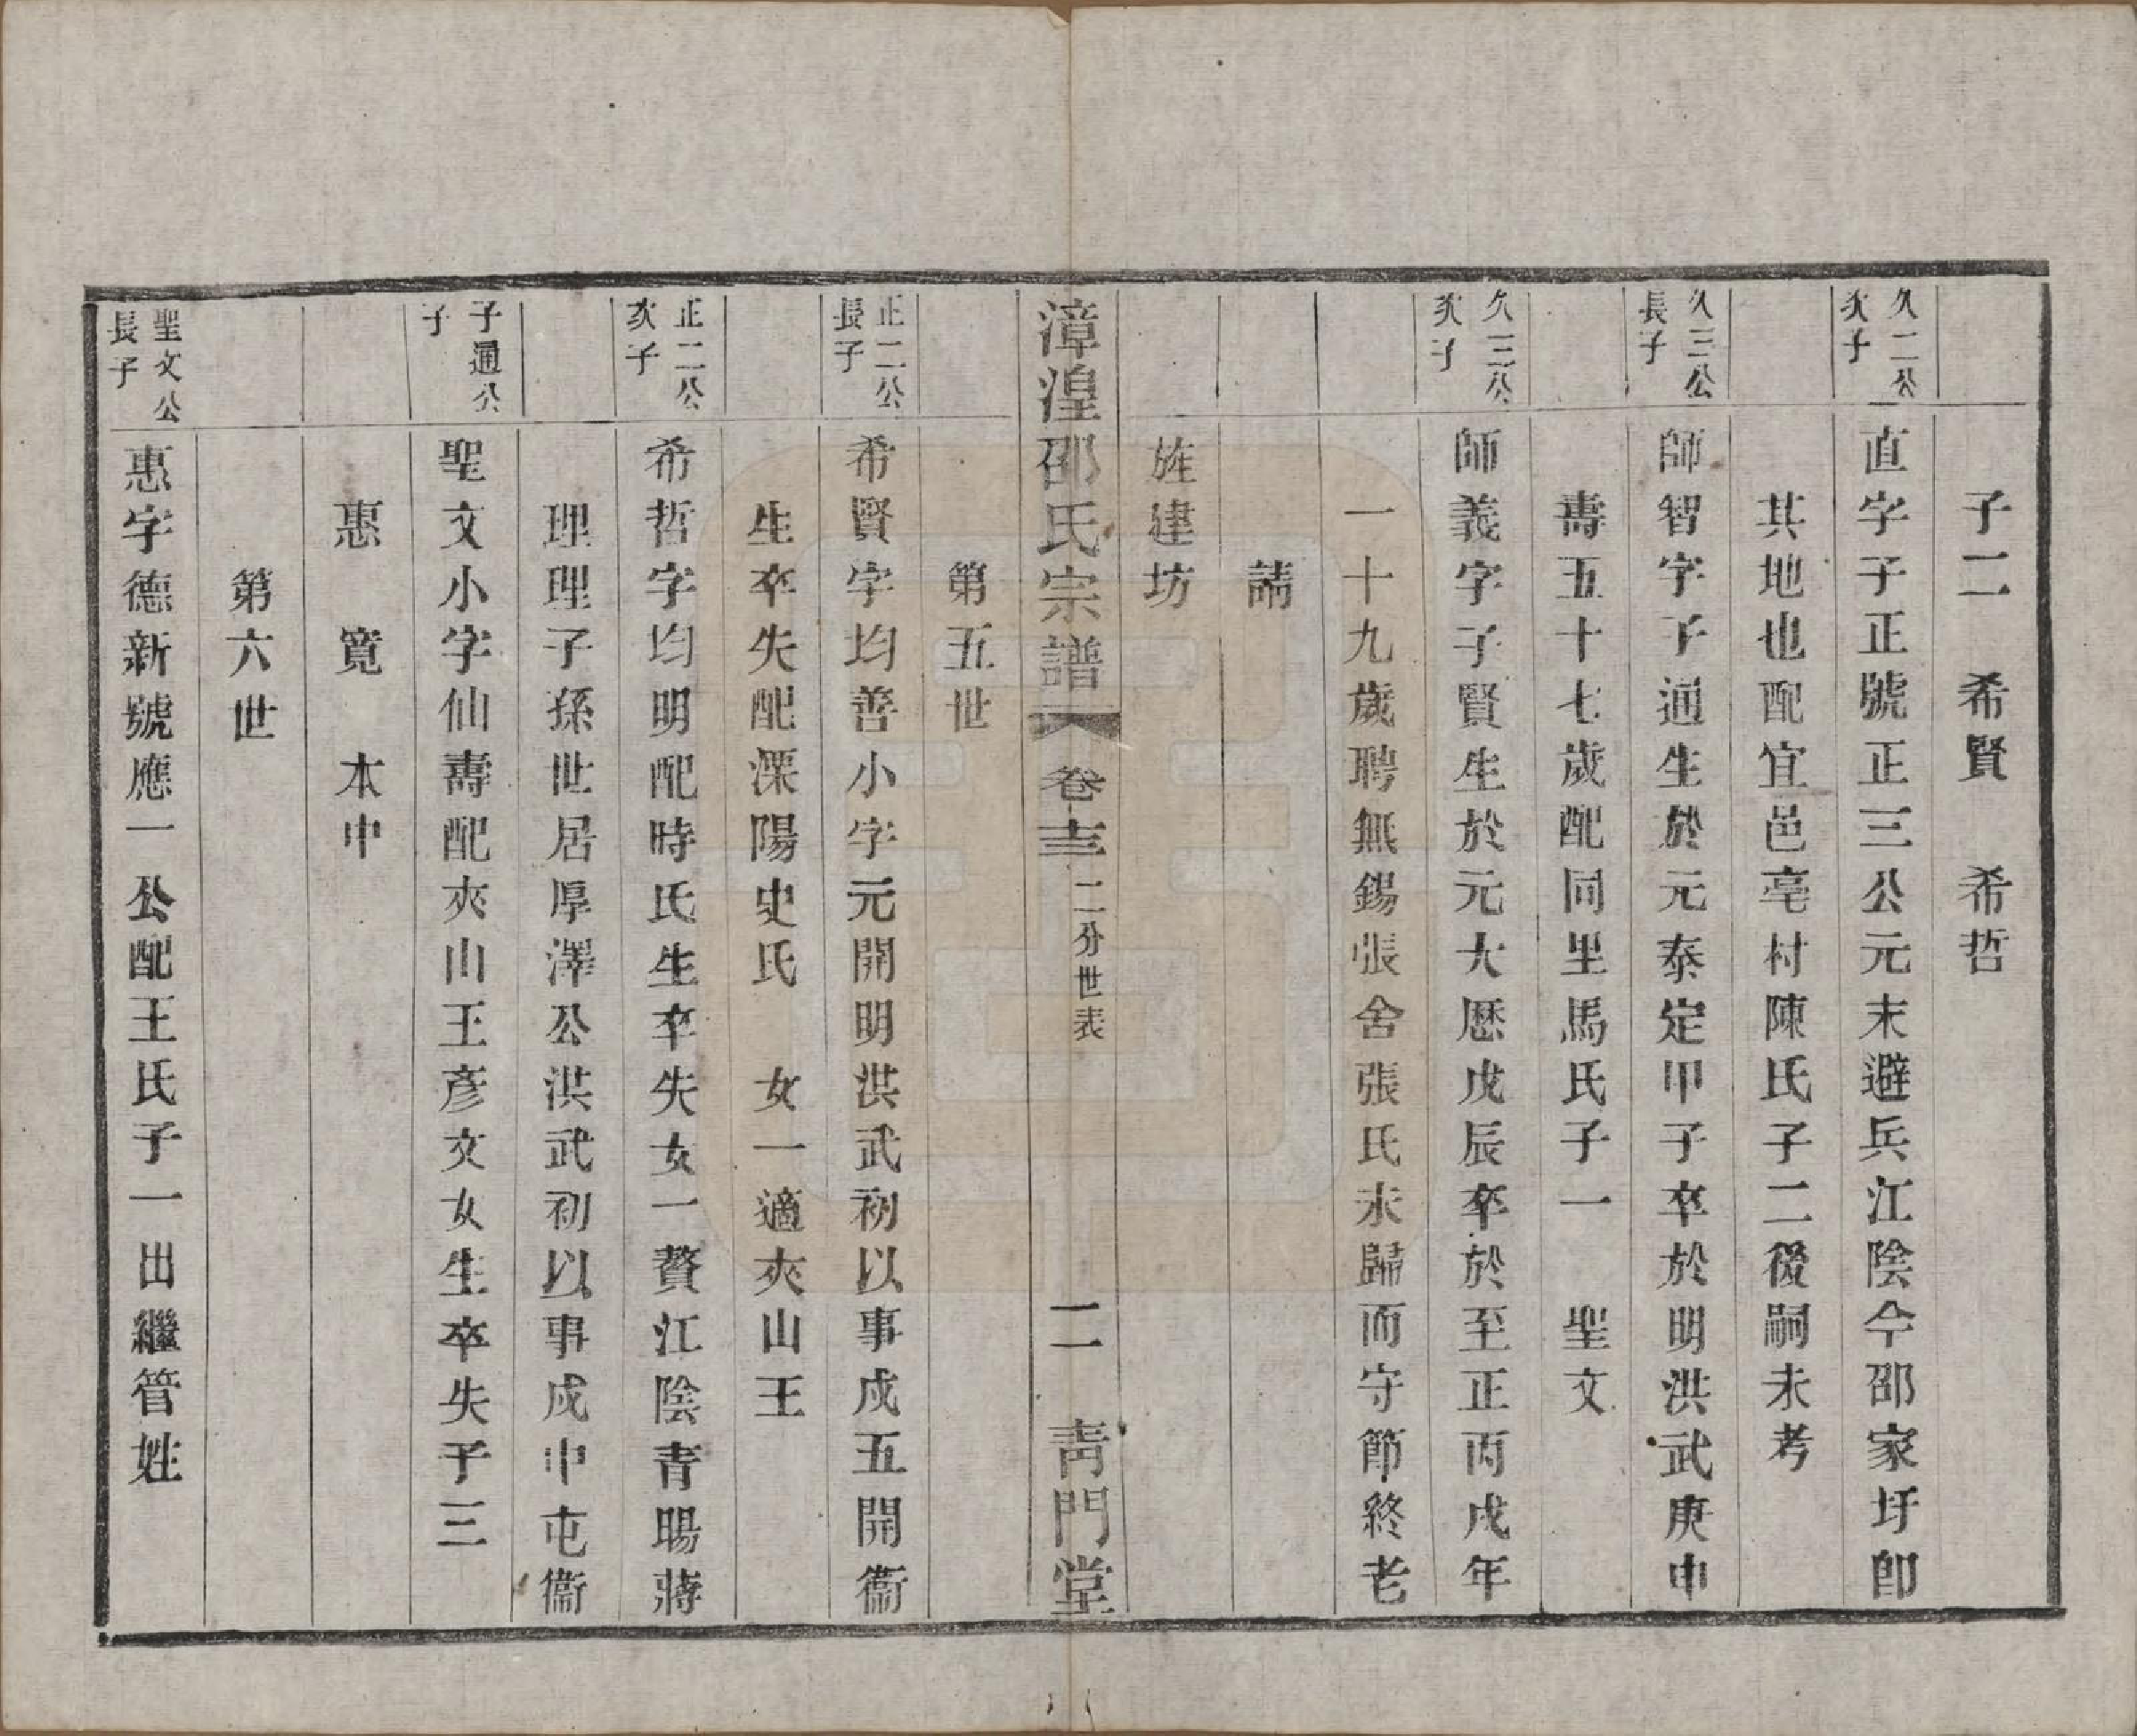 子二　希賢　希哲
久二公次子
直字子正號正三公元末避兵江陰今邵家圩卽
其地也配宜邑亳村陳氏子二後嗣未考
久三公長子
師智字子通生於元泰定甲子卒於明洪武庚申
壽五十七歲配同里馬氏子一　聖文
久三公次子
師義字子賢生於元大歷戊辰卒於至正丙戌年
一十九歲聘無錫張舍張氏未歸而守節終老
請
旌建坊
漳湟邵氏宗譜　卷十三　二分世表　二　靑門堂
第五世
正二公長子
希賢字均善小字元開明洪武初以事戍五開衞
生卒失配溧陽史氏　女一適夾山王
正二公次子
希哲字均明配時氏生卒失女一贅江陰青暘蔣
理理子孫世居厚澤公洪武初以事戍中屯衞
子通公子
聖文小字仙壽配夾山王彥文女生卒失子三
惠　寬　本中
第六世
聖文公長子
惠字德新號應一公配王氏子一出繼管姓